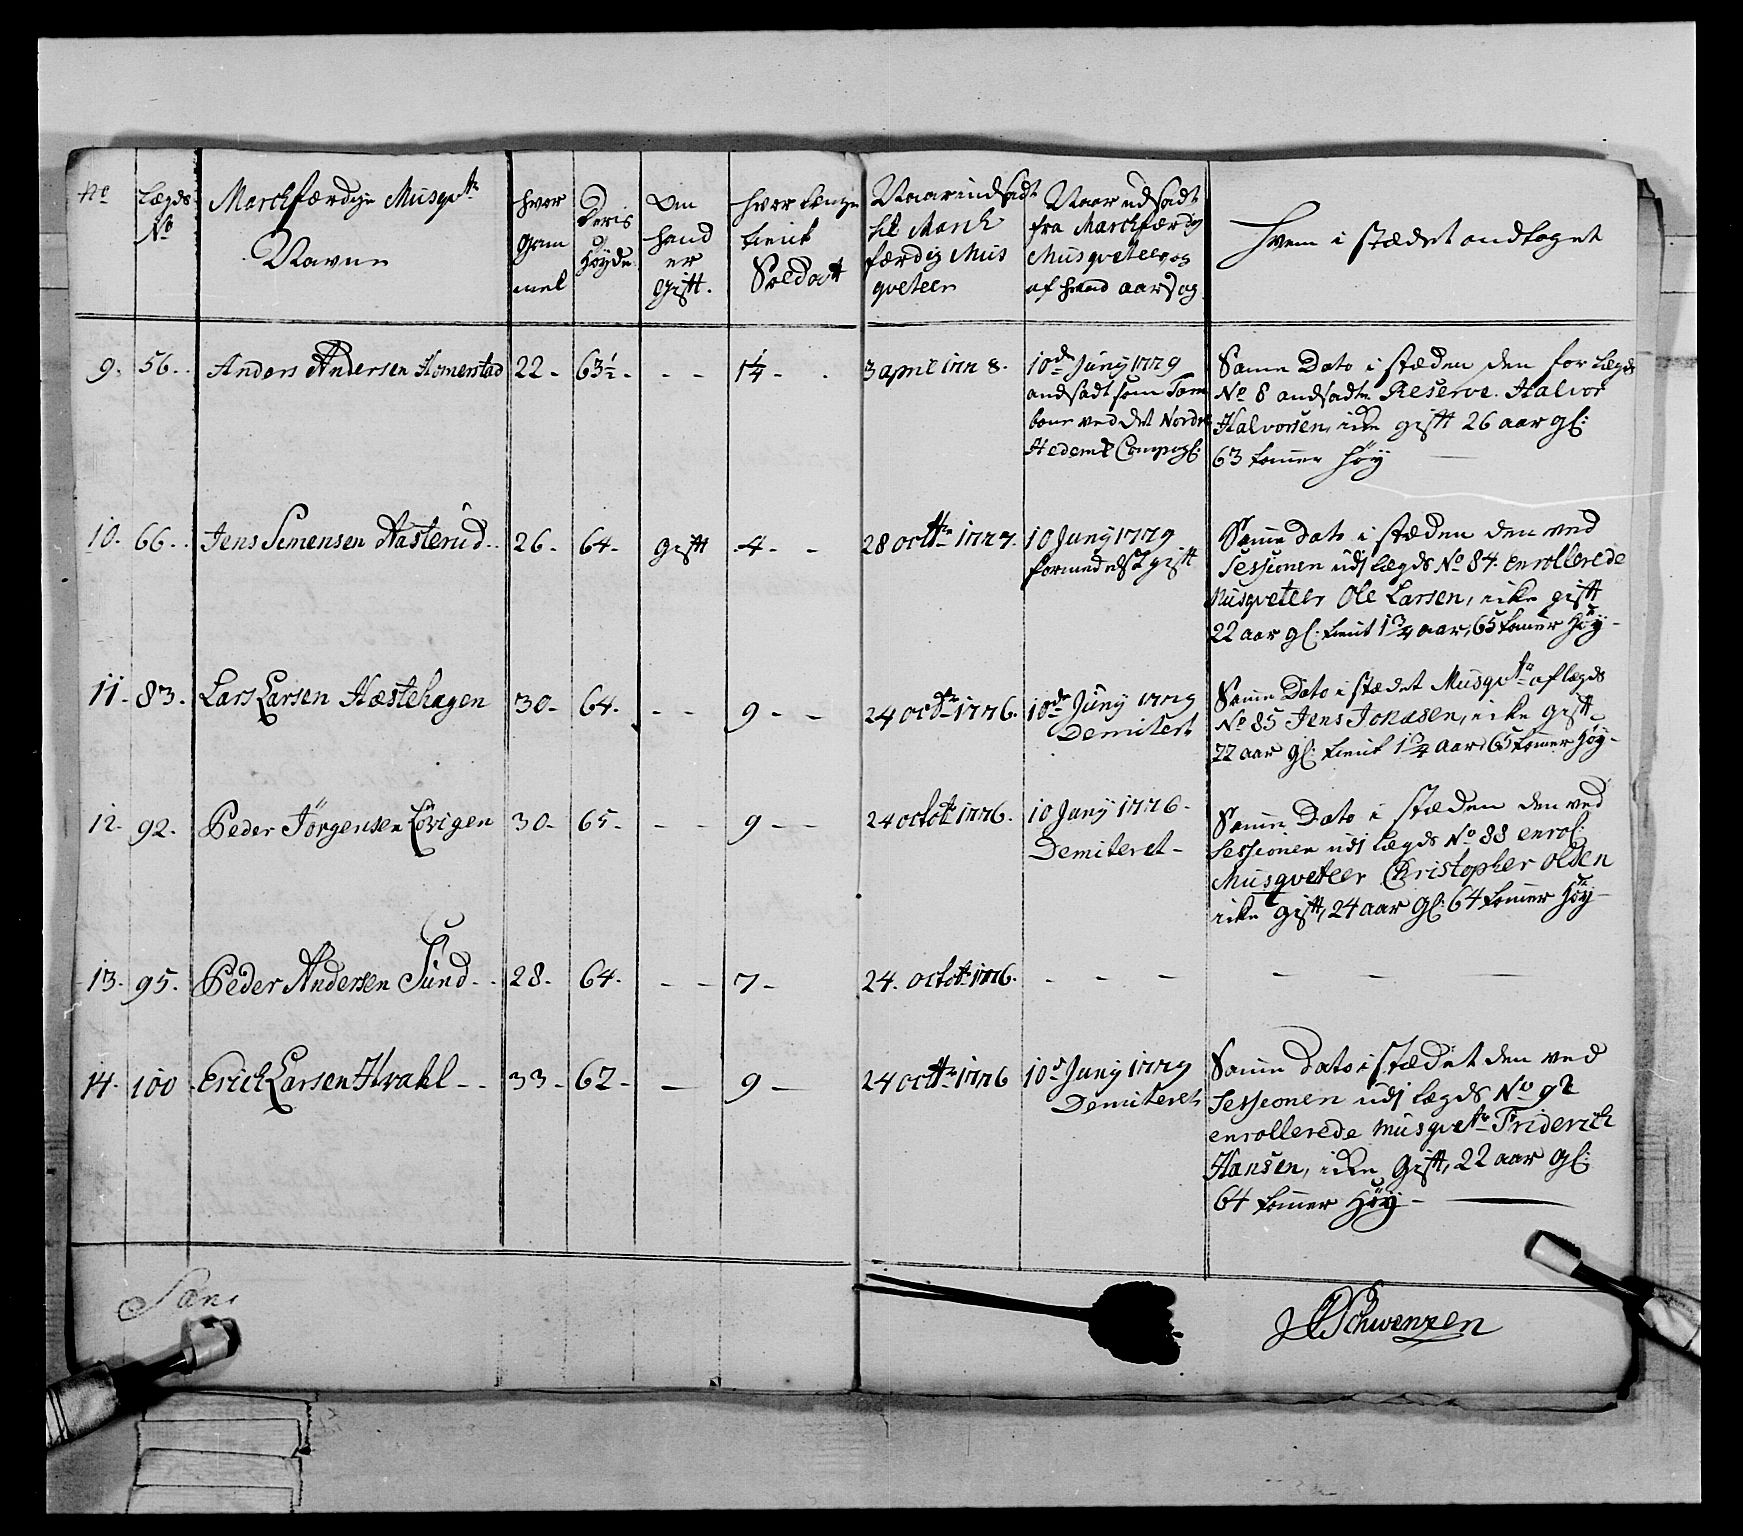 No
Lægds
No
Marchfærdige Musqvtr
Navne
hvor
gam
mel
Deris
Høyde
Om
hand
er
gift.
hvor længe
tient
Soldatt
Naar indsadt
til March
færdig Mus
qveteer
Naar udsadt
fra Marchfærdig
Musqveteer, og
af hvad aarsag
Hvem i stædet andtaget
9. 56. Anders Andersen Homerstad 22 - 63½ - - - 1¼ - - 3 april 1778.
10de Juny 1779
andsadt som Tam
bour ved det Nordre
Hedemk Compagl:
Samme Dato i stæden den for Lægd
No 8 andsadte Reserve Halvor
Halvorsen, icke gift 26 aar gl:
63 tommer høy
10. 66. Jens Simensen Aasterud 26 - 64 - gift 4 - - 28 octbr 1777.
10 Juny 1779
formedelst gift
Samme Dato i stæden den ved
Sessionen udj Lægds No 84. enrollerede
Musqveteer Ole Larsen, icke gift
22 aar gl: tient 1¾ aar, 65 tommer høy -
11. 83. Lars Larsen Hæstehagen 30 - 64 - - - 9 - - 24 octbr 1776.
10de Juny 1779
Demitert
Samme Dato i stædet Musqvtr af Lægds
No 85 Jens Jonasen, icke gift
22 aar gl: tient 1¾ aar, 65 tommer høy -
12. 92. Peder Jørgensen Løvigen 30 - 65 - - - 9 - - 24 octobr 1776.
10 Juny 1776 -
Demiteret -
Samme Dato i stæden den ved
Sessionen udj Lægds No 88 enrol:
Musqveteer Christopher Olsen
icke gift, 24 aar gl: 64 tommer høy -
13. 95. Peder Andersen Sund - - 28 - 64 - - - 7 - 24. octobr 1776. - - - - - -
14. 100 Erich Larsen Hvahl - - 33 - 62 - - 9 - 24 octbr 1776
10de Juny 1779
Demiteret
Samme Dato i stædet den ved
Sessionen udj Lægds No 92
enrollerede Musqvetr Friderich
Hansen, icke gift, 22 aar gl:
64 tommer høy -
Schwenzen